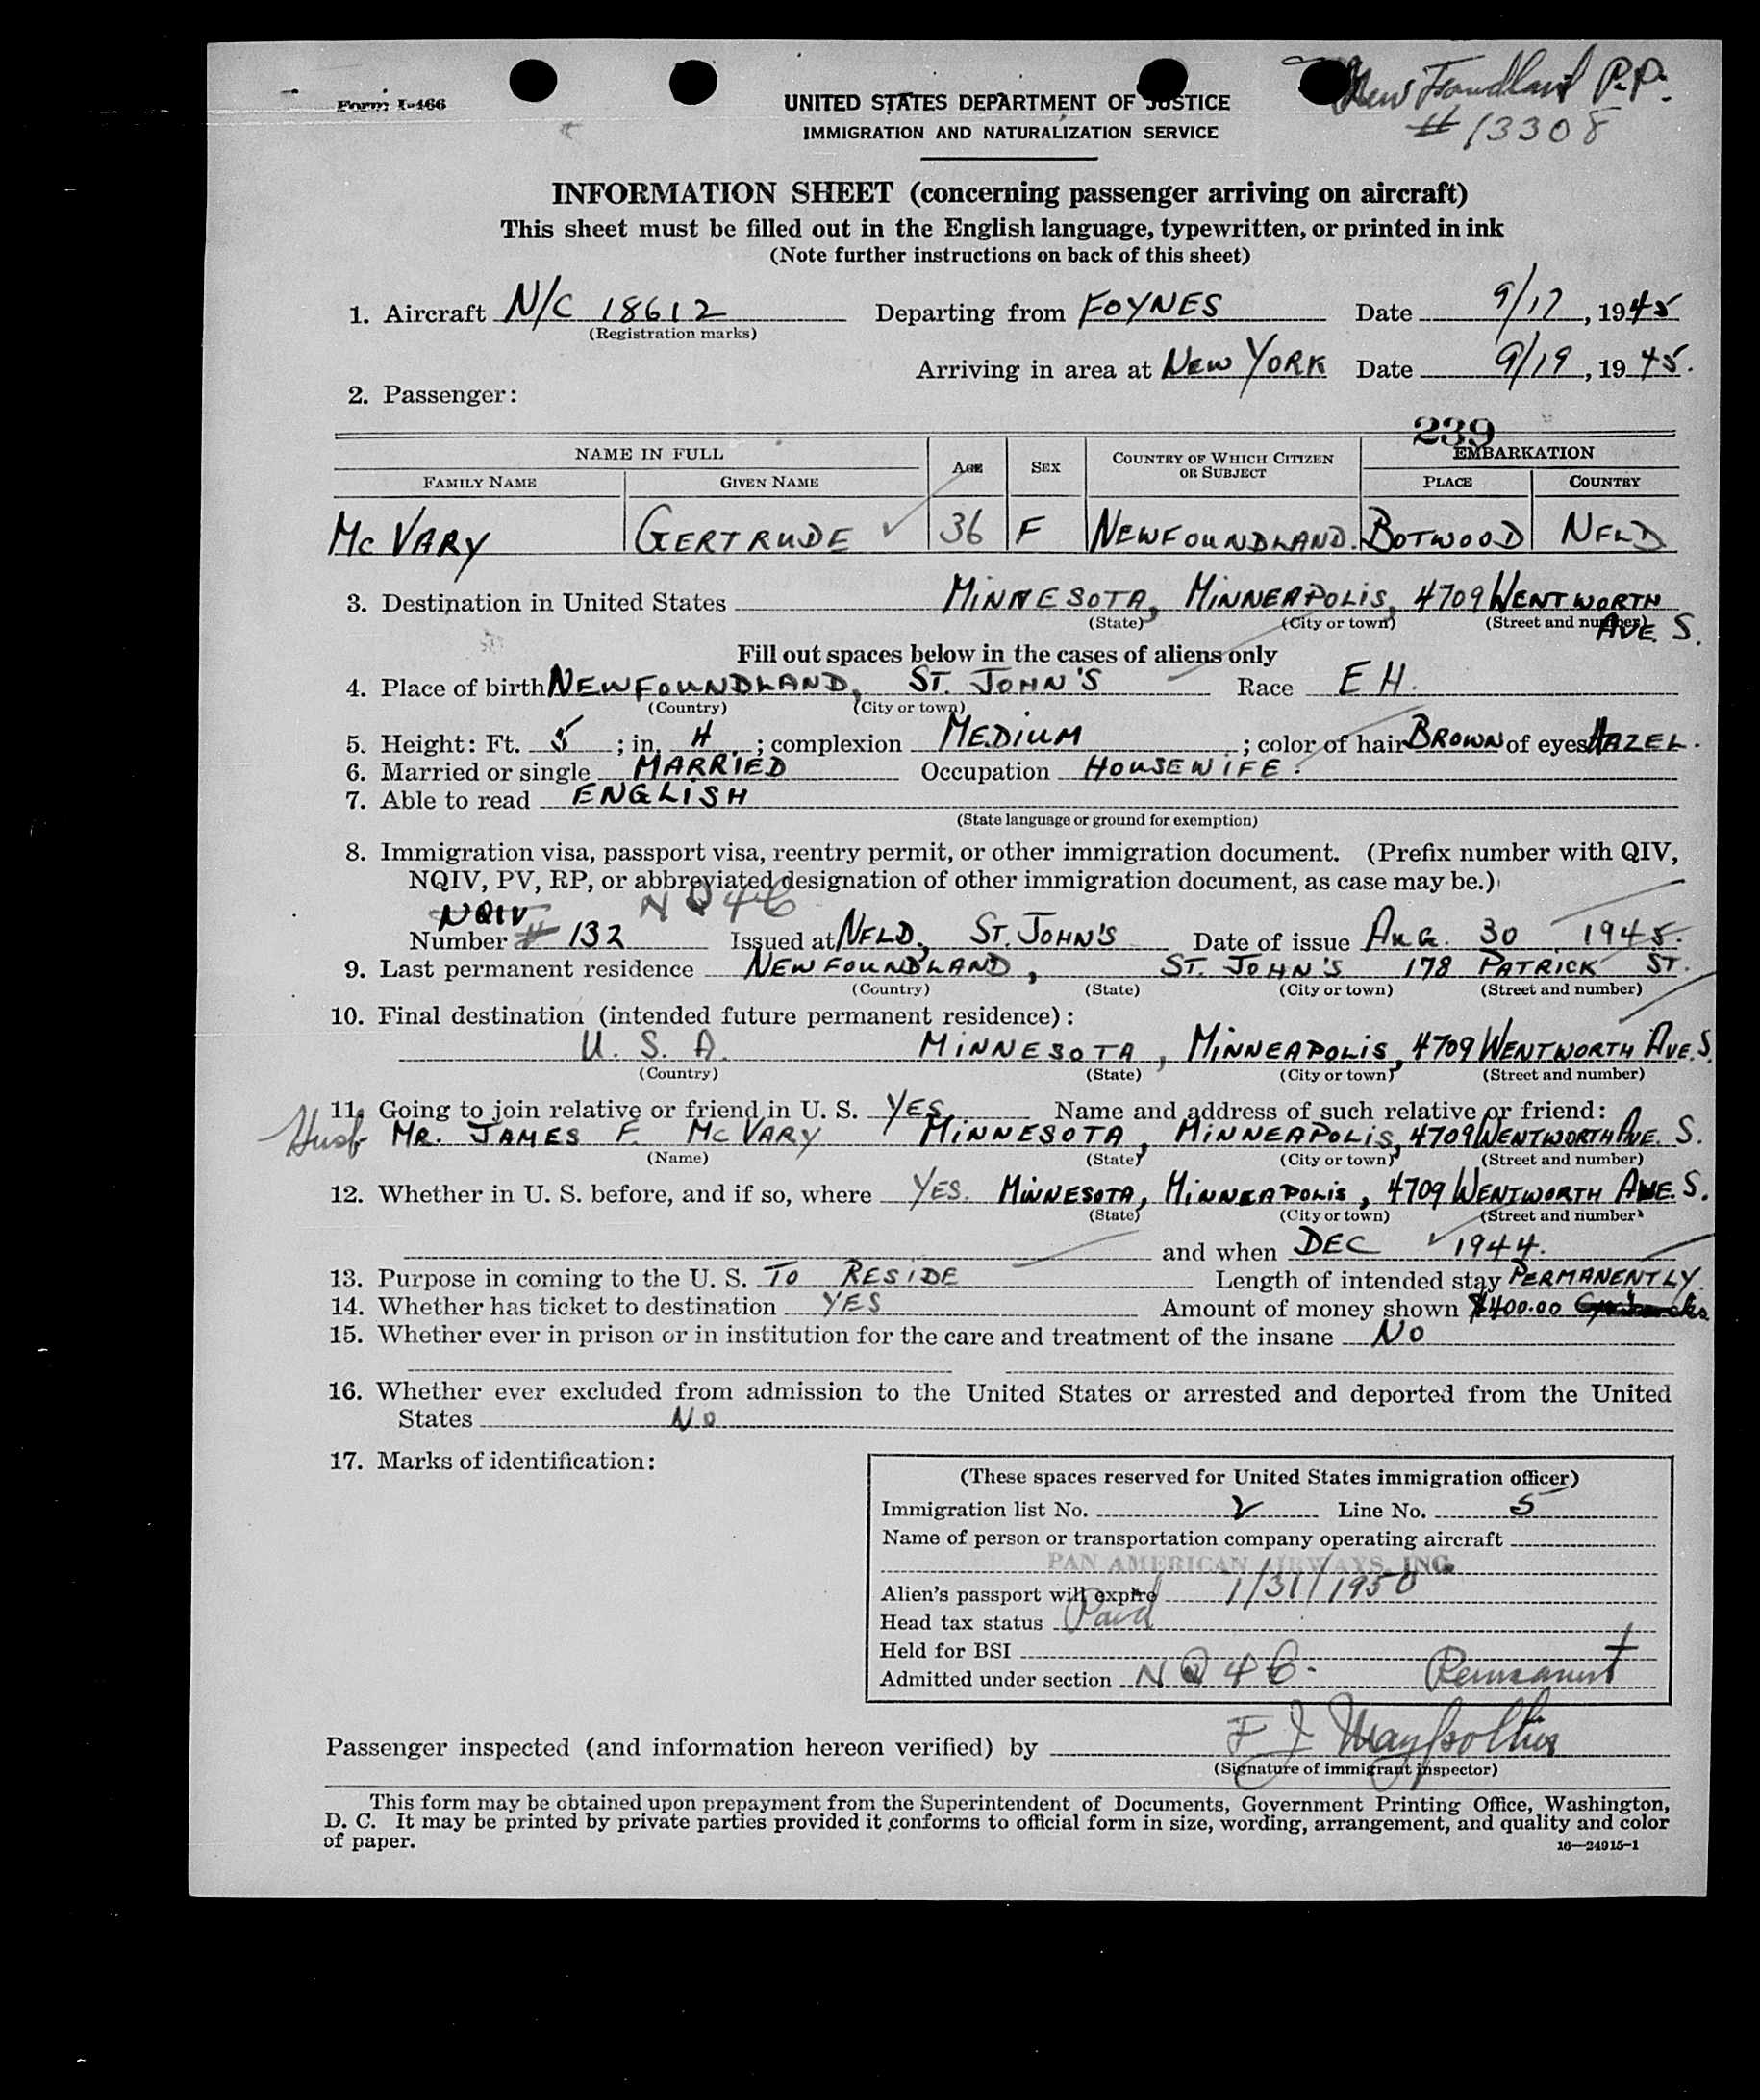 New Foundland P.P.
# 13308
Form I-466
UNITED STATES DEPARTMENT OF JUSTICE
IMMIGRATION AND NATURALIZATION SERVICE
INFORMATION SHEET (concerning passenger arriving on aircraft)
This sheet must be filled out in the English language, typewritten, or printed in ink
(Note further instructions on back of this sheet)
1. Aircraft N/C 18612 Departing from FOYNES Date 9/17, 1945
(Registration marks)
Arriving in area at NEW YORK Date 9/19, 1945.
2. Passenger:
239
NAME IN FULL AGE SEX COUNTRY OF WHICH CITIZEN OR SUBJECT EMBARKATION
FAMILY NAME GIVEN NAME PLACE COUNTRY
Mc VARY GERTRUDE ✓ 36 F NEWFOUNDLAND. BOTWOOD NFLD
3. Destination in United States MINNESOTA, MINNEAPOLIS, 4709 WENTWORTH
(State) (City or town) (Street and number) AVE. S.
Fill out spaces below in the cases of aliens only
4. Place of birth NEWFOUNDLAND, ST. JOHN'S Race EH.
(Country) (City or town)
5. Height: Ft. 5 ; in. 4 ; complexion MEDIUM ; color of hair BROWN of eyes HAZEL.
6. Married or single MARRIED Occupation HOUSEWIFE.
7. Able to read ENGLISH
(State language or ground for exemption)
8. Immigration visa, passport visa, reentry permit, or other immigration document. (Prefix number with QIV,
NQIV, PV, RP, or abbreviated designation of other immigration document, as case may be.)
NQIV N Q 4 C
Number # 132 Issued at NFLD., ST. JOHN'S Date of issue AUG. 30 1945.
9. Last permanent residence NEWFOUNDLAND, ST. JOHN'S 178 PATRICK ST.
(Country) (State) (City or town) (Street and number)
10. Final destination (intended future permanent residence):
U. S. A. MINNESOTA, MINNEAPOLIS, 4709 WENTWORTH AVE. S.
(Country) (State) (City or town) (Street and number)
11. Going to join relative or friend in U. S. YES. Name and address of such relative or friend:
Husb MR. JAMES F. MC VARY MINNESOTA, MINNEAPOLIS, 4709 WENTWORTH AVE. S.
(Name) (State) (City or town) (Street and number)
12. Whether in U. S. before, and if so, where YES. MINNESOTA, MINNEAPOLIS, 4709 WENTWORTH AVE. S.
(State) (City or town) (Street and number)
and when DEC ✓ 1944.
13. Purpose in coming to the U. S. TO RESIDE Length of intended stay PERMANENTLY.
14. Whether has ticket to destination YES Amount of money shown $400.00
15. Whether ever in prison or in institution for the care and treatment of the insane NO
16. Whether ever excluded from admission to the United States or arrested and deported from the United
States NO
17. Marks of identification:
(These spaces reserved for United States immigration officer)
Immigration list No. 2 Line No. 5
Name of person or transportation company operating aircraft
PAN AMERICAN AIRWAYS, INC.
Alien's passport will expire 1/31/1950
Head tax status Paid
Held for BSI
Admitted under section N Q 4 C. Permanent
Passenger inspected (and information hereon verified) by F J
(Signature of immigrant inspector)
This form may be obtained upon prepayment from the Superintendent of Documents, Government Printing Office, Washington,
D. C. It may be printed by private parties provided it conforms to official form in size, wording, arrangement, and quality and color
of paper.
16—24915-1